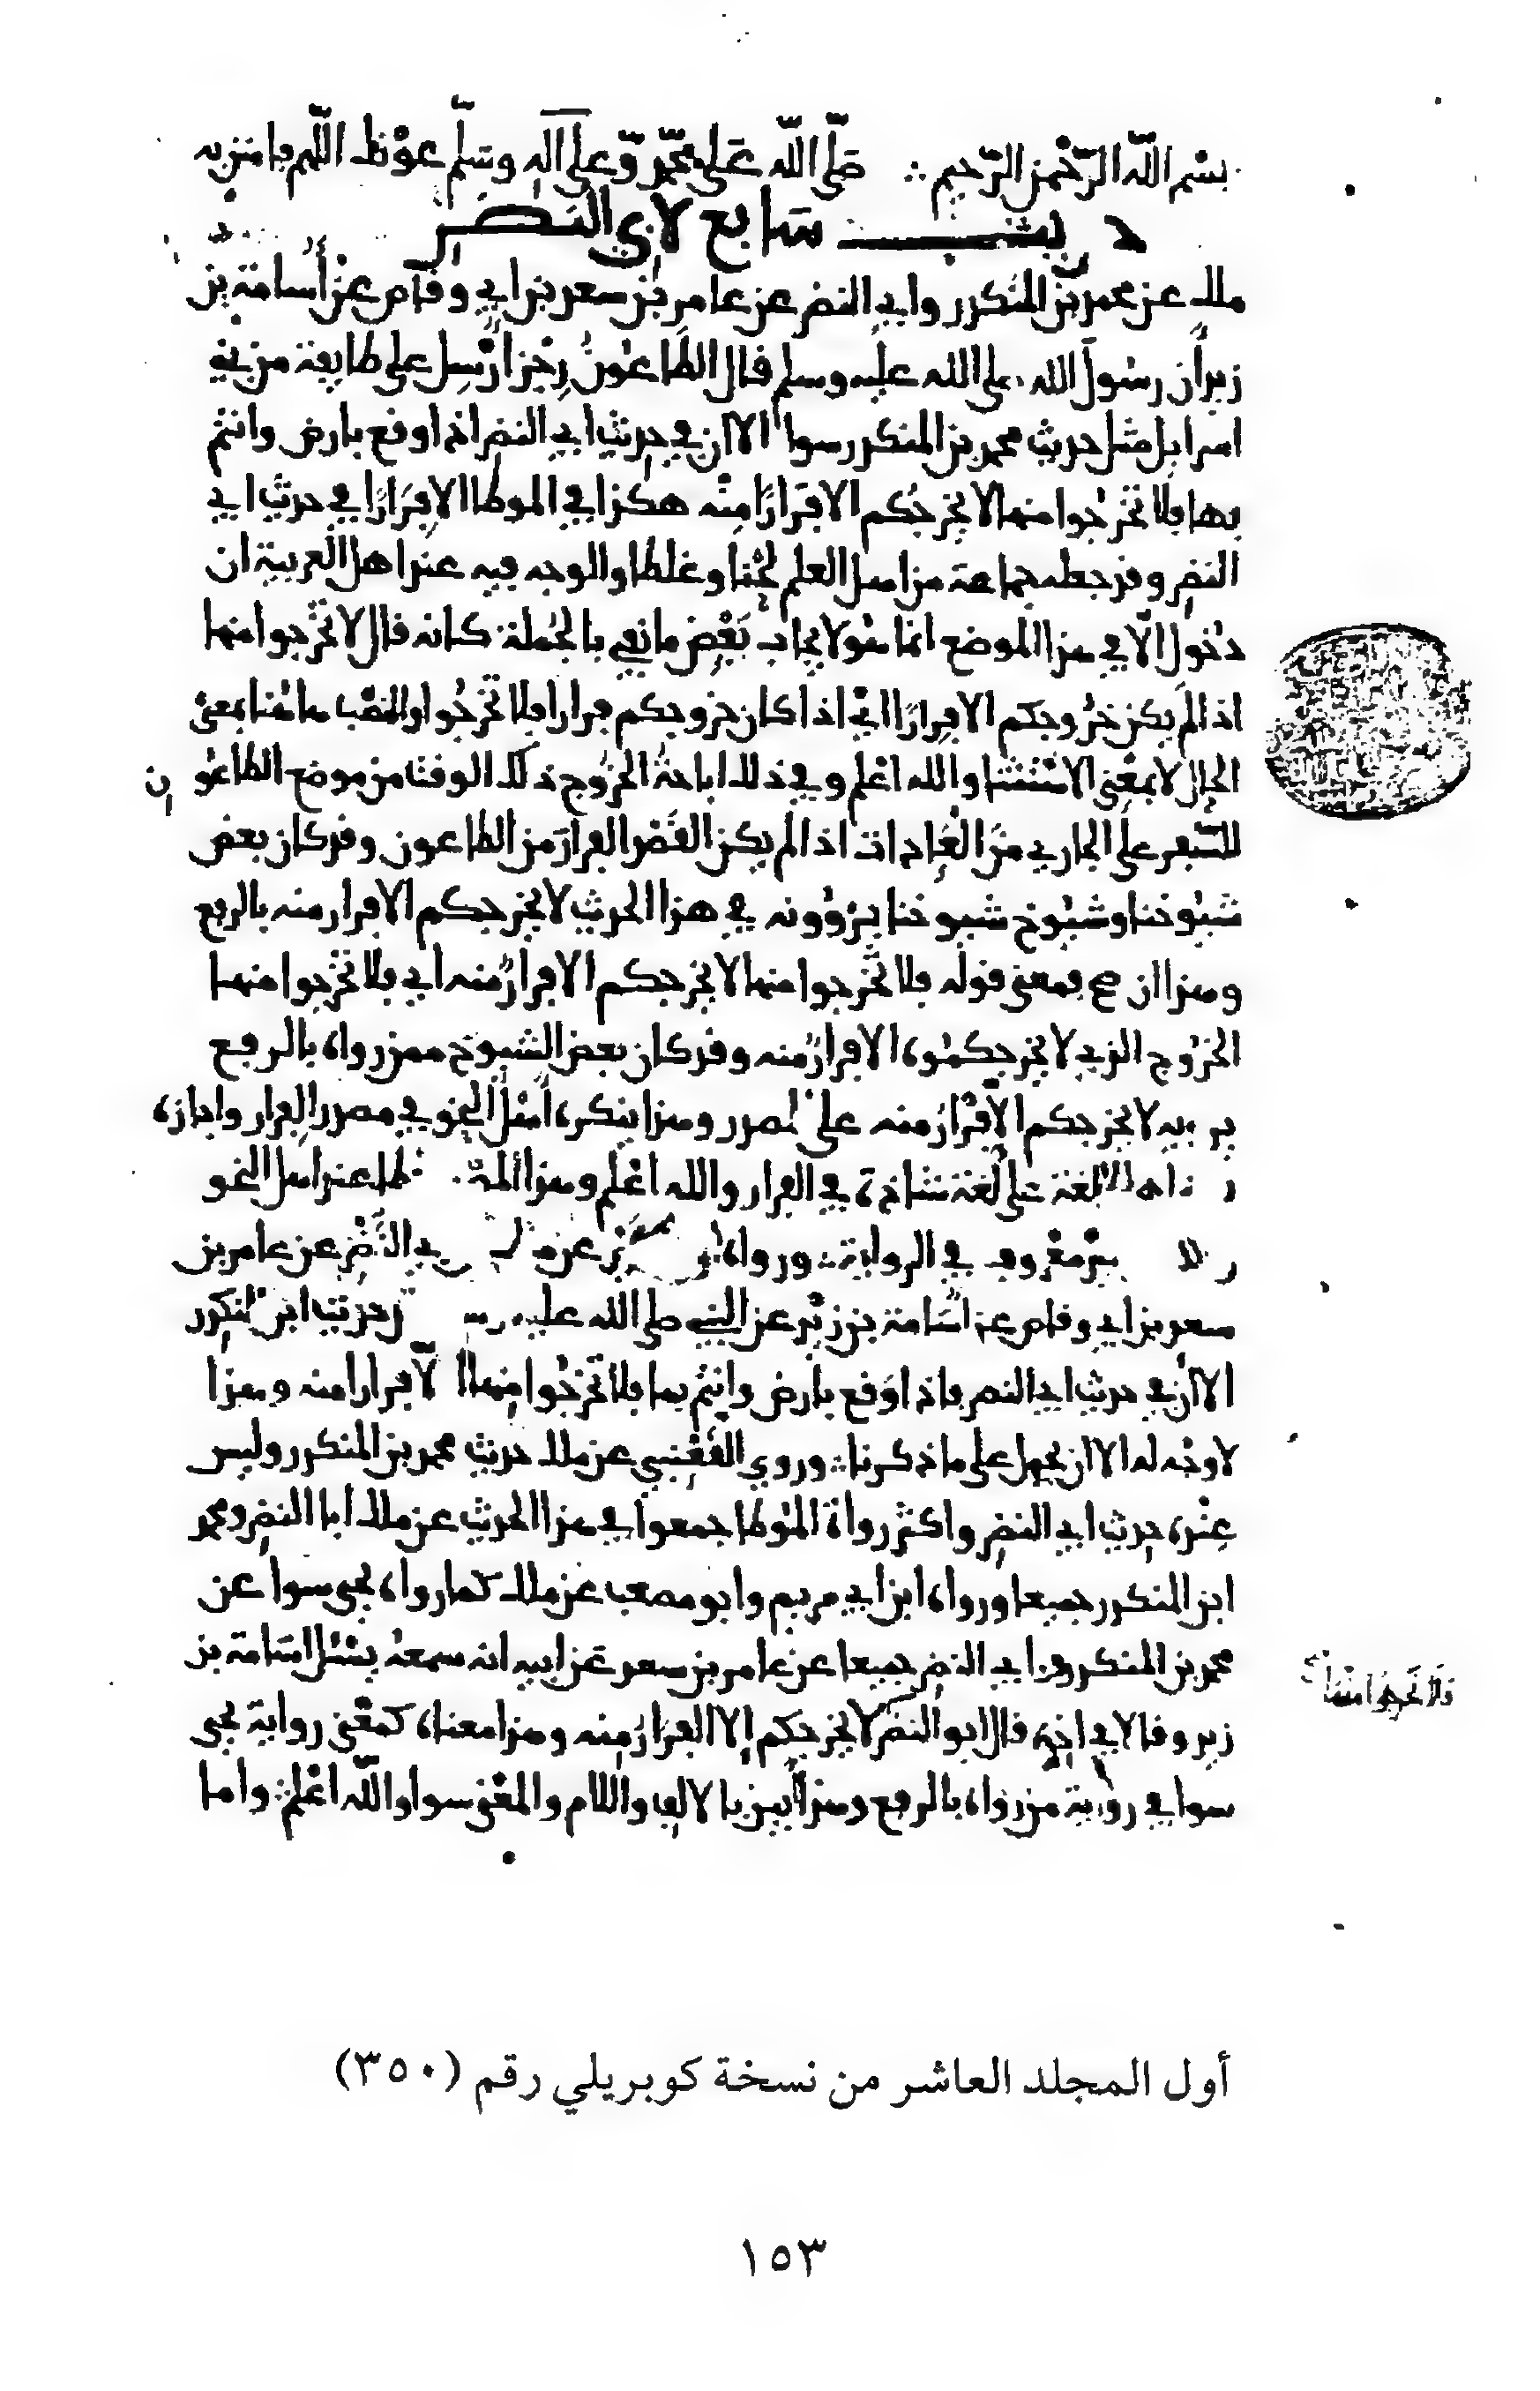 بسم الله الرحمن الرحيم صلى الله على محمد وعلى آله وسلم عونك اللهم يا من به
حديث سابع لأبي النضر
ملك عن محمد بن المنكدر وابي النضر عن عامر بن سعد بن ابي وقاص عن أسامة بن
زيد أن رسول الله صلى الله عليه وسلم قال الطاعون رجز أرسل على طايفة من بني
اسرايل مثل حديث محمد بن المنكدر سوا الا ان في حديث ابي النضر اذا وقع بارض وانتم
بها فلا تخرجوا منها لا يخرجكم الا فرارا منه هكذا في الموطا الا فرارا في حديث ابي
النضر وقد جعله جماعة من اهل العلم لحنا وغلطا والوجه فيه عند اهل العربية ان
دخول الا في هذا الموضع انما هو لايجاب بعض ما نفي بالجملة كانه قال لا تخرجوا منها
اذا لم يكن خروجكم الا فرارا اي اذا كان خروجكم فرارا فلا تخرجوا والنصب هاهنا بمعنى
الحال لا بمعنى الاستثنا والله اعلم وفي ذلك اباحة الخروج ذلك الوقت من موضع الطاعون
للسفر على الجاري من العادات اذا لم يكن القصد الفرار من الطاعون وقد كان بعض
شيوخنا وشيوخ شيوخنا يروونه في هذا الحديث لا يخرجكم الا فرار منه بالرفع
وهذا ان صح فمعنى قوله فلا تخرجوا منها لا يخرجكم الا فرار منه اي فلا تخرجوا منها
الخروج الذي لا يخرجكموه الا فرار منه وقد كان بعض الشيوخ ممن رواه بالرفع
يرويه لا يخرجكم الإفرار منه على المصدر وهذا ينكره أهل النحو في مصدر الفرار واجازه
لغة على لغة شاذة في الفرار والله اعلم وهذا عند اهل النحو
غير معروف في الرواية ورواه عن النضر عن عامر بن
سعد بن ابي وقاص عن أسامة بن زيد عن النبي صلى الله عليه حديث ابن المنكدر
الا ان في حديث ابي النضر فاذا وقع بارض وانتم بها فلا تخرجوا منها الا فرارا منه وهذا
لا وجه له الا ان يحمل على ما ذكرنا وروى القعنبي عن ملك حديث محمد بن المنكدر وليس
عنده حديث ابي النضر واكثر رواة الموطا جمعوا في هذا الحديث عن ملك ابا النضر ومحمد
ابن المنكدر جميعا ورواه ابن ابي مريم وابو مصعب عن ملك كما رواه يحيى سوا عن
محمد بن المنكدر وعن ابي النضر جميعا عن عامر بن سعد عن ابيه انه سمعه يسئل أسامة بن
زيد وقالا في اخره قال ابو النضر لا يخرجكم إلا الفرار منه وهذا معناه كمعنى رواية يحيى
سوا في رواية من رواه بالرفع وهذا ابين بالالف واللام والمعنى سوا والله اعلم واما
فلا تخرجوا منها
أول المجلد العاشر من نسخة كوبريلي رقم (٣٥٠)
١٥٣